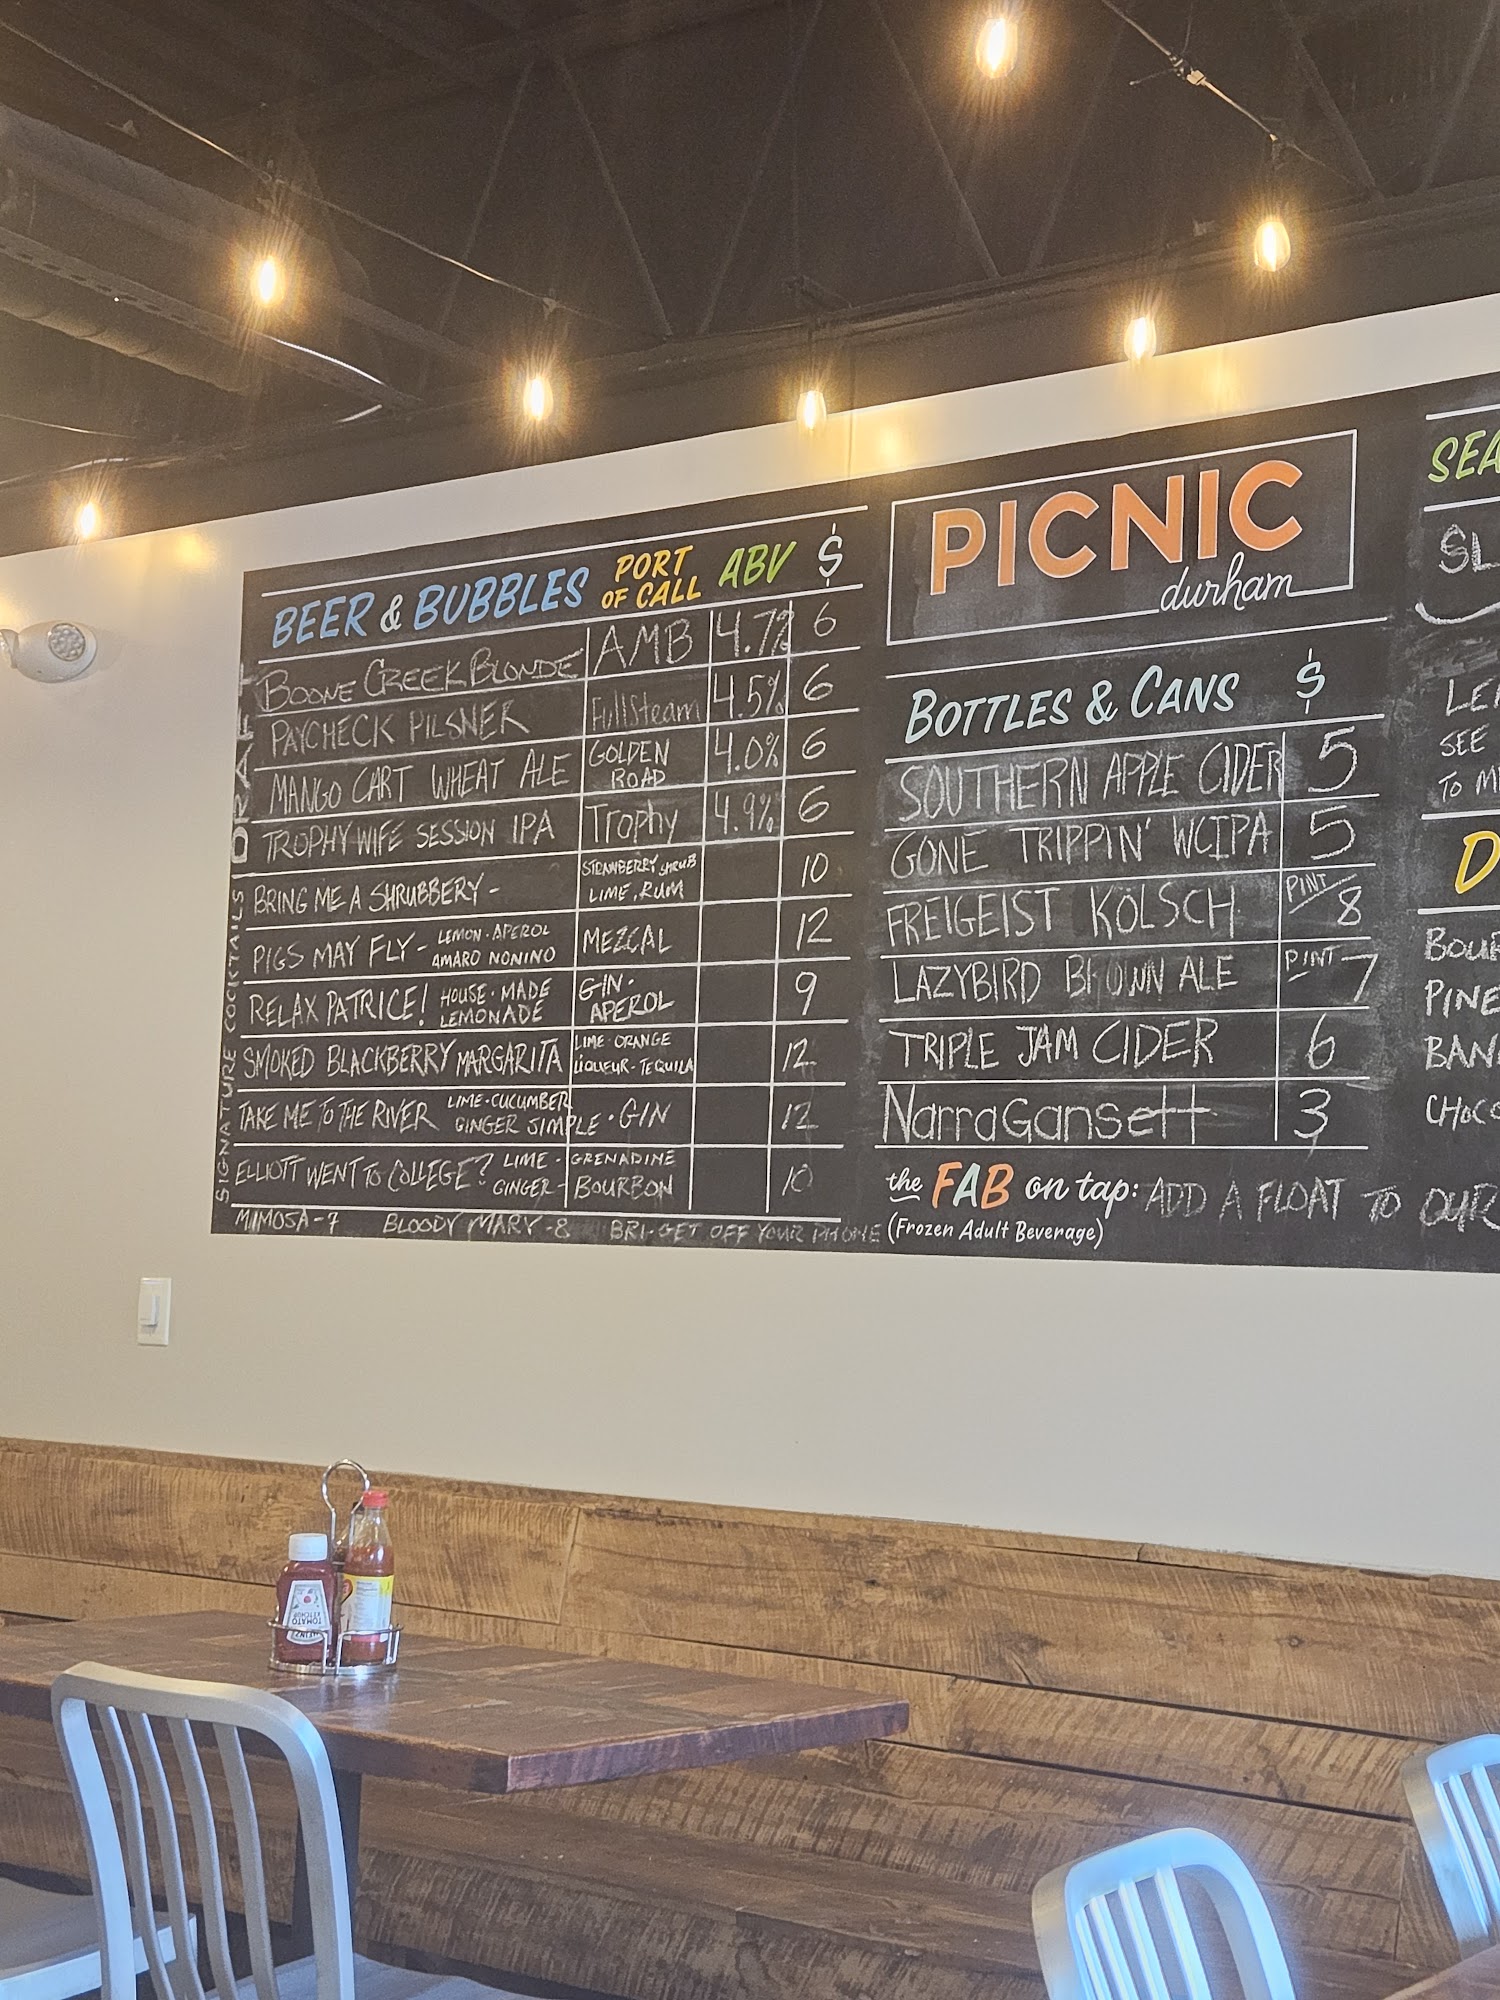 BEER & BUBBLES PORT OF CALL ABV $
DRAFT
BOONE CREEK BLONDE AMB 4.7% 6
PAYCHECK PILSNER FullSteam 4.5% 6
MANGO CART WHEAT ALE GOLDEN ROAD 4.0% 6
TROPHY WIFE SESSION IPA Trophy 4.9% 6
SIGNATURE COCKTAILS
BRING ME A SHRUBBERY - STRAWBERRY SHRUB LIME, RUM 10
PIGS MAY FLY - LEMON · APEROL AMARO NONINO MEZCAL 12
RELAX PATRICE! HOUSE · MADE LEMONADE GIN · APEROL 9
SMOKED BLACKBERRY MARGARITA LIME · ORANGE LIQUEUR - TEQUILA 12
TAKE ME TO THE RIVER LIME · CUCUMBER GINGER SIMPLE · GIN 12
ELLIOTT WENT TO COLLEGE? LIME - GRENADINE GINGER - BOURBON 10
MIMOSA - 7 BLOODY MARY - 8 BRI - GET OFF YOUR PHONE
PICNIC
durham
BOTTLES & CANS $
SOUTHERN APPLE CIDER 5
GONE TRIPPIN' WCIPA 5
FREIGEIST KÖLSCH PINT 8
LAZYBIRD BROWN ALE PINT 7
TRIPLE JAM CIDER 6
NarraGansett 3
the FAB on tap: ADD A FLOAT TO OUR
(Frozen Adult Beverage)
SEA
SL
LE
SEE
TO M
D
BOUR
PINE
BAN
CHOC
TOMATO
KETCHUP
HEINZ